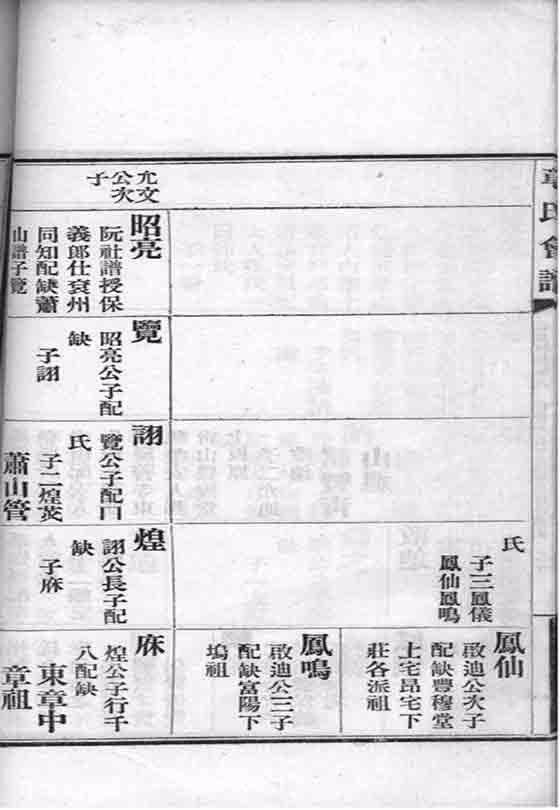 章氏會譜
氏
子三鳳儀
鳳仙鳳鳴
鳳仙
啟迪公次子
配缺豐穆堂
上宅昂宅下
莊各派祖
鳳鳴
啟迪公三子
配缺富陽下
塢祖
允文
公次
子
昭亮
阮社譜授保
義郎仕袁州
同知配缺蕭
山譜子覽
覽
昭亮公子配
缺
子詡
詡
覽公子配口
氏
子二煌
蕭山管
煌
詡公長子配
缺
子庥
庥
煌公子行千
八配缺
東章中
章祖